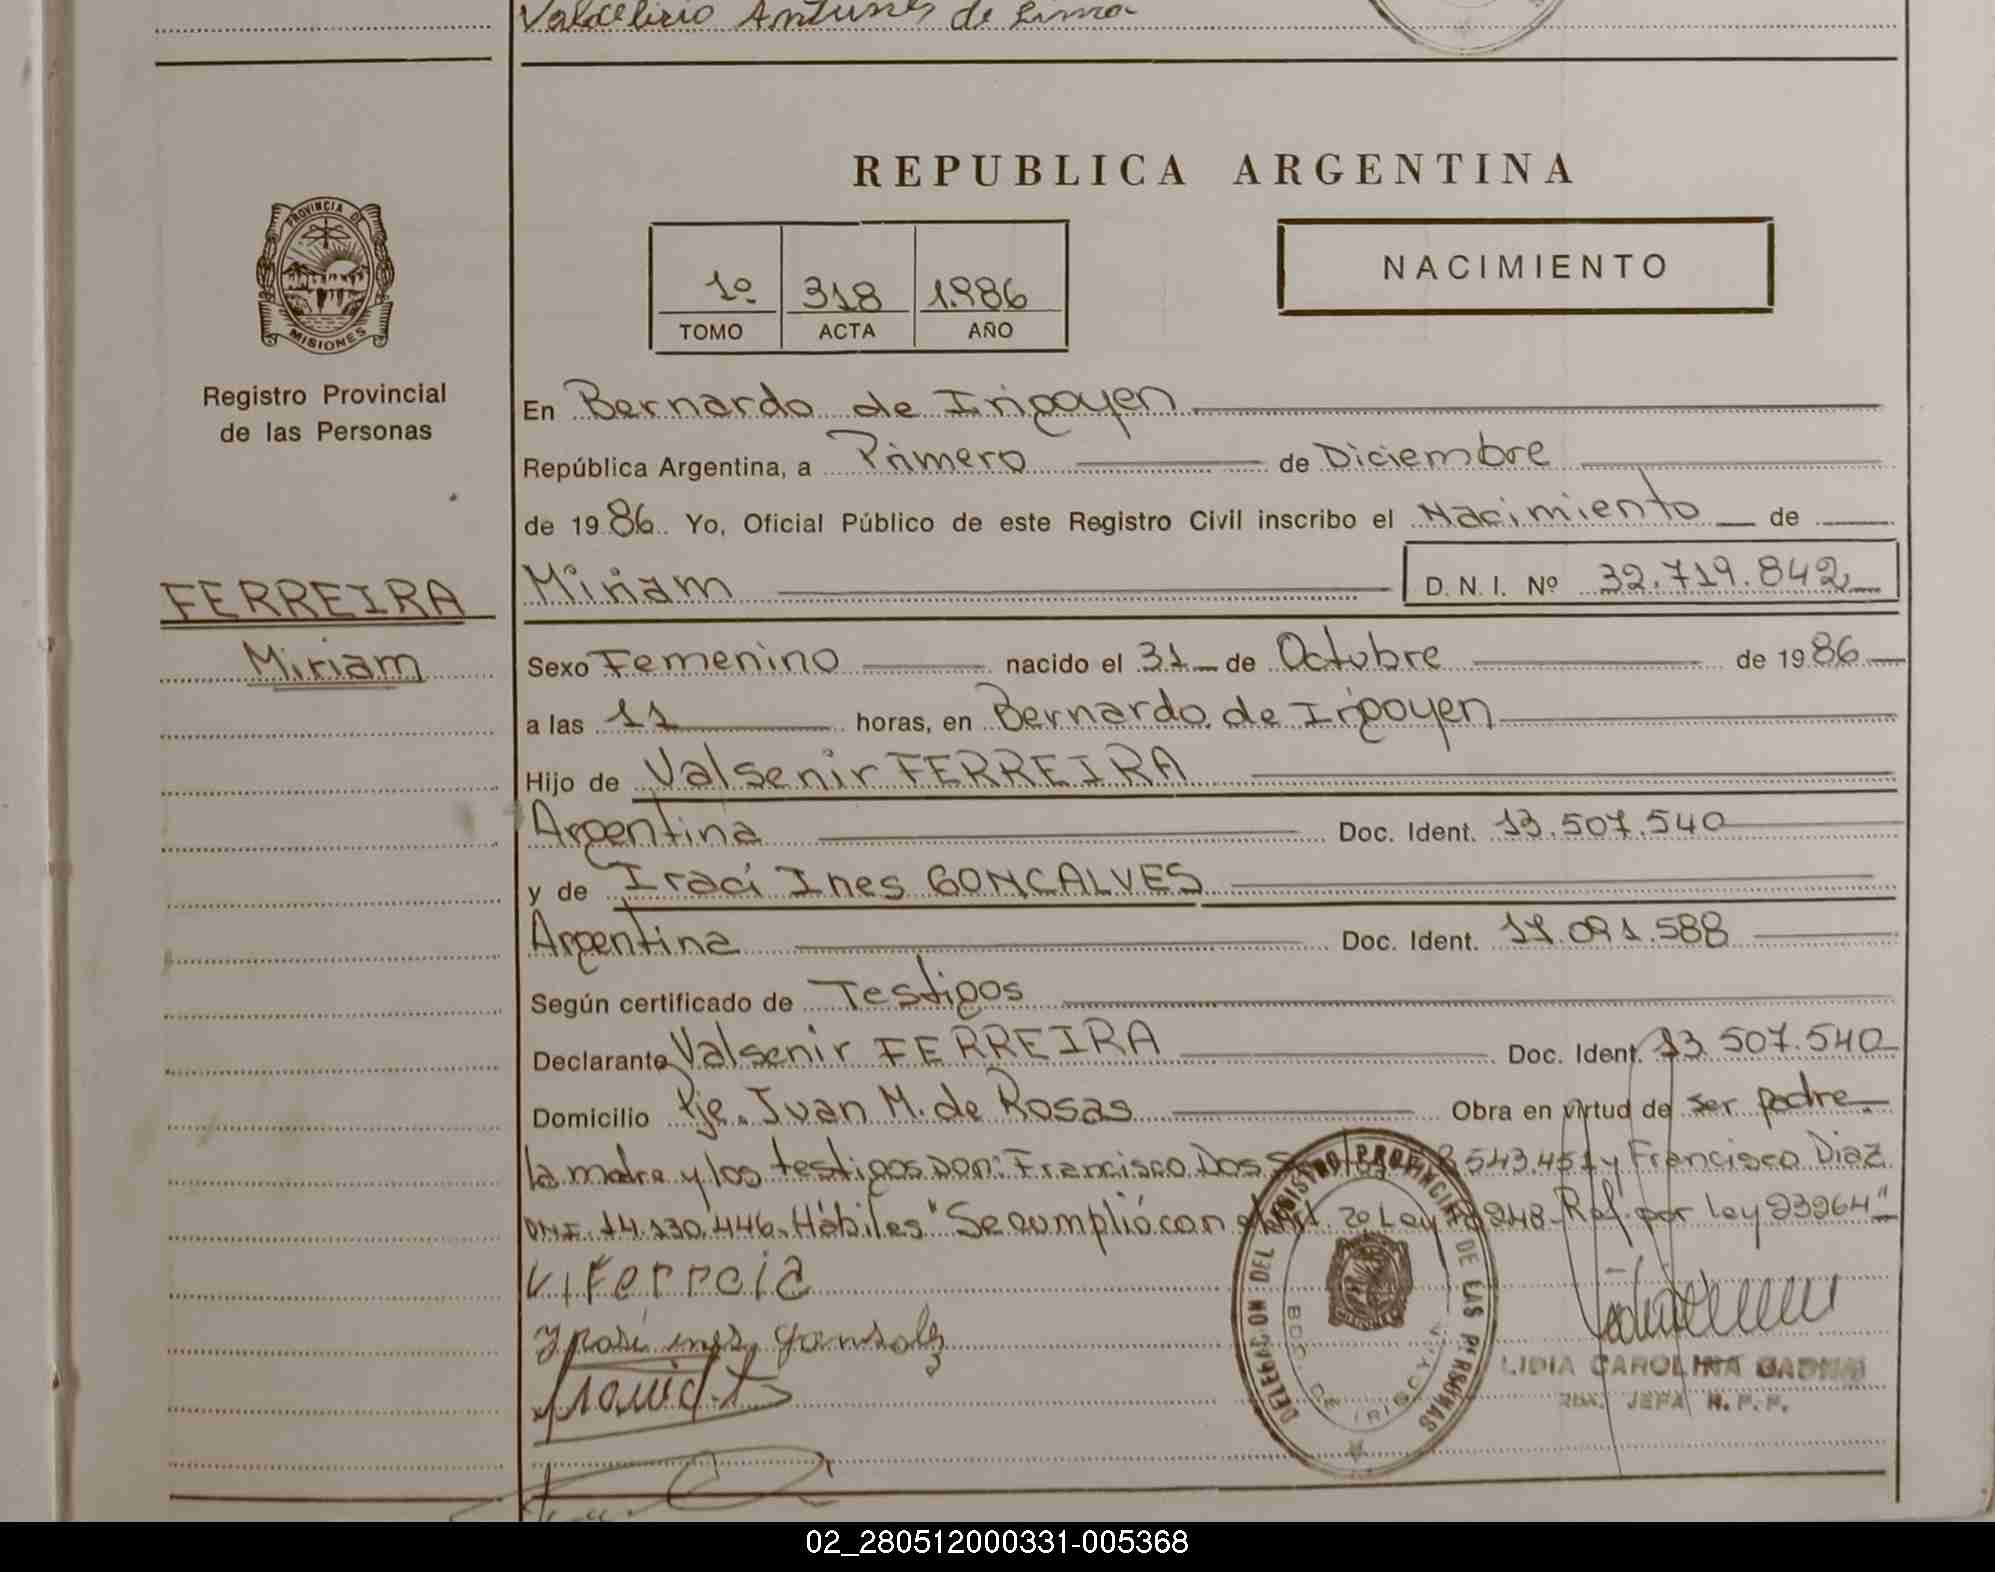 Valdelirio Antunes de Lima
PROVINCIA DE
MISIONES
Registro Provincial
de las Personas
REPUBLICA ARGENTINA
1º 318 1.986
TOMO ACTA AÑO
NACIMIENTO
En Bernardo de Irigoyen
República Argentina, a Primero de Diciembre
de 1986. Yo, Oficial Público de este Registro Civil inscribo el Nacimiento de
FERREIRA
Miriam
Miriam D. N. I. Nº 32.719.842
Sexo Femenino nacido el 31 de Octubre de 1986
a las 11 horas, en Bernardo de Irigoyen
Hijo de Valsenir FERREIRA
Argentina Doc. Ident. 13.507.540
y de Iraci Ines GONCALVES
Argentina Doc. Ident. 17.091.588
Según certificado de Testigos
Declarante Valsenir FERREIRA Doc. Ident. 13.507.540
Domicilio Pje. Juan M. de Rosas Obra en virtud de ser padre.
la madre y los testigos son: Francisco Dos 543.451 y Francisco Diaz
DNI. 14.130.446. Hábiles "Se cumplió con el Art. 2o Ley 18248- Ref. por Ley 23264"
V. Ferreia
ines
DELEGACION DEL REGISTRO PROVINCIAL DE LAS PERSONAS
BDO. DE IRIGOYEN
LIDIA CAROLINA
JEFA R. P. P.
02_280512000331-005368